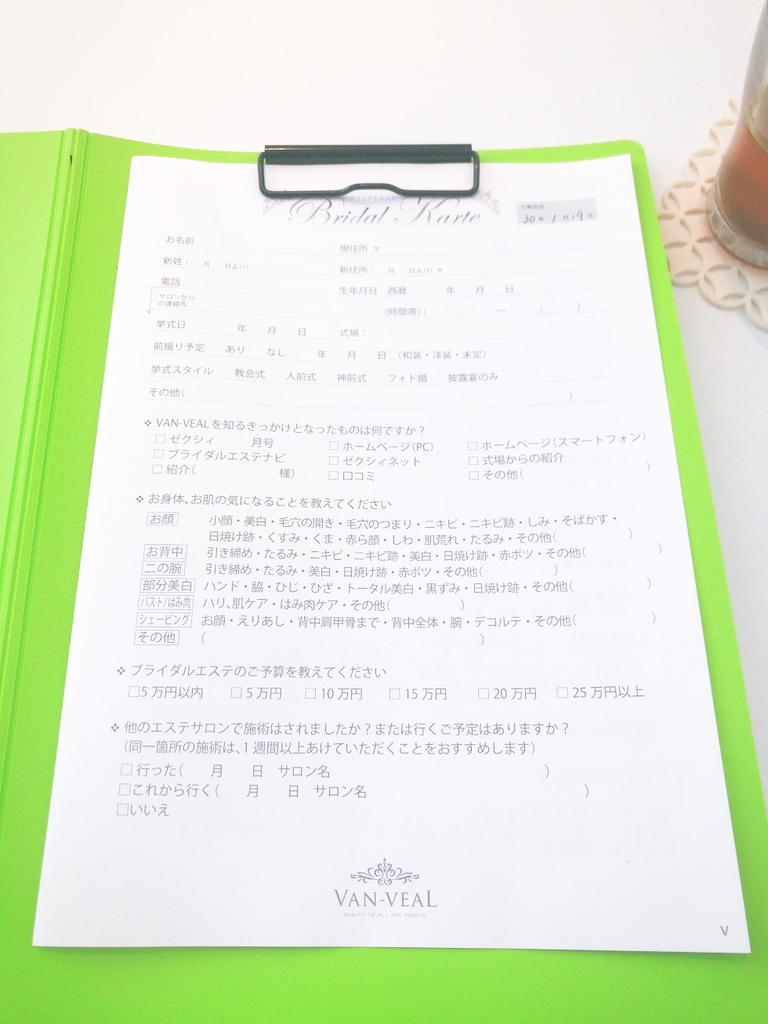 Bridal Karte
ご来店日
30年 1月19日
お名前 現住所 〒
新姓( 月 日より) 新住所( 月 日より)〒
電話 生年月日 西暦 年 月 日
サロンから
の連絡先 (時間帯)( : ～ : )
挙式日 年 月 日 式場：
前撮り予定 あり なし 年 月 日 (和装・洋装・未定)
挙式スタイル 教会式 人前式 神前式 フォト婚 披露宴のみ
その他( )
❖ VAN-VEALを知るきっかけとなったものは何ですか？
□ ゼクシィ 月号 □ ホームページ(PC) □ ホームページ(スマートフォン)
□ ブライダルエステナビ □ ゼクシィネット □ 式場からの紹介
□ 紹介( 様) □ 口コミ □ その他( )
❖ お身体、お肌の気になることを教えてください
お顔 小顔・美白・毛穴の開き・毛穴のつまり・ニキビ・ニキビ跡・しみ・そばかす・
日焼け跡・くすみ・くま・赤ら顔・しわ・肌荒れ・たるみ・その他( )
お背中 引き締め・たるみ・ニキビ・ニキビ跡・美白・日焼け跡・赤ポツ・その他( )
二の腕 引き締め・たるみ・美白・日焼け跡・赤ポツ・その他( )
部分美白 ハンド・脇・ひじ・ひざ・トータル美白・黒ずみ・日焼け跡・その他( )
バスト/はみ肉 ハリ、肌ケア・はみ肉ケア・その他( )
シェービング お顔・えりあし・背中肩甲骨まで・背中全体・腕・デコルテ・その他( )
その他 ( )
❖ ブライダルエステのご予算を教えてください
□5万円以内 □5万円 □10万円 □15万円 □20万円 □25万円以上
❖ 他のエステサロンで施術はされましたか？または行くご予定はありますか？
(同一箇所の施術は、1週間以上あけていただくことをおすすめします)
□ 行った( 月 日 サロン名 )
□これから行く( 月 日 サロン名 )
□いいえ
VAN-VEAL
BEAUTY TO ALL THE PEOPLE
V